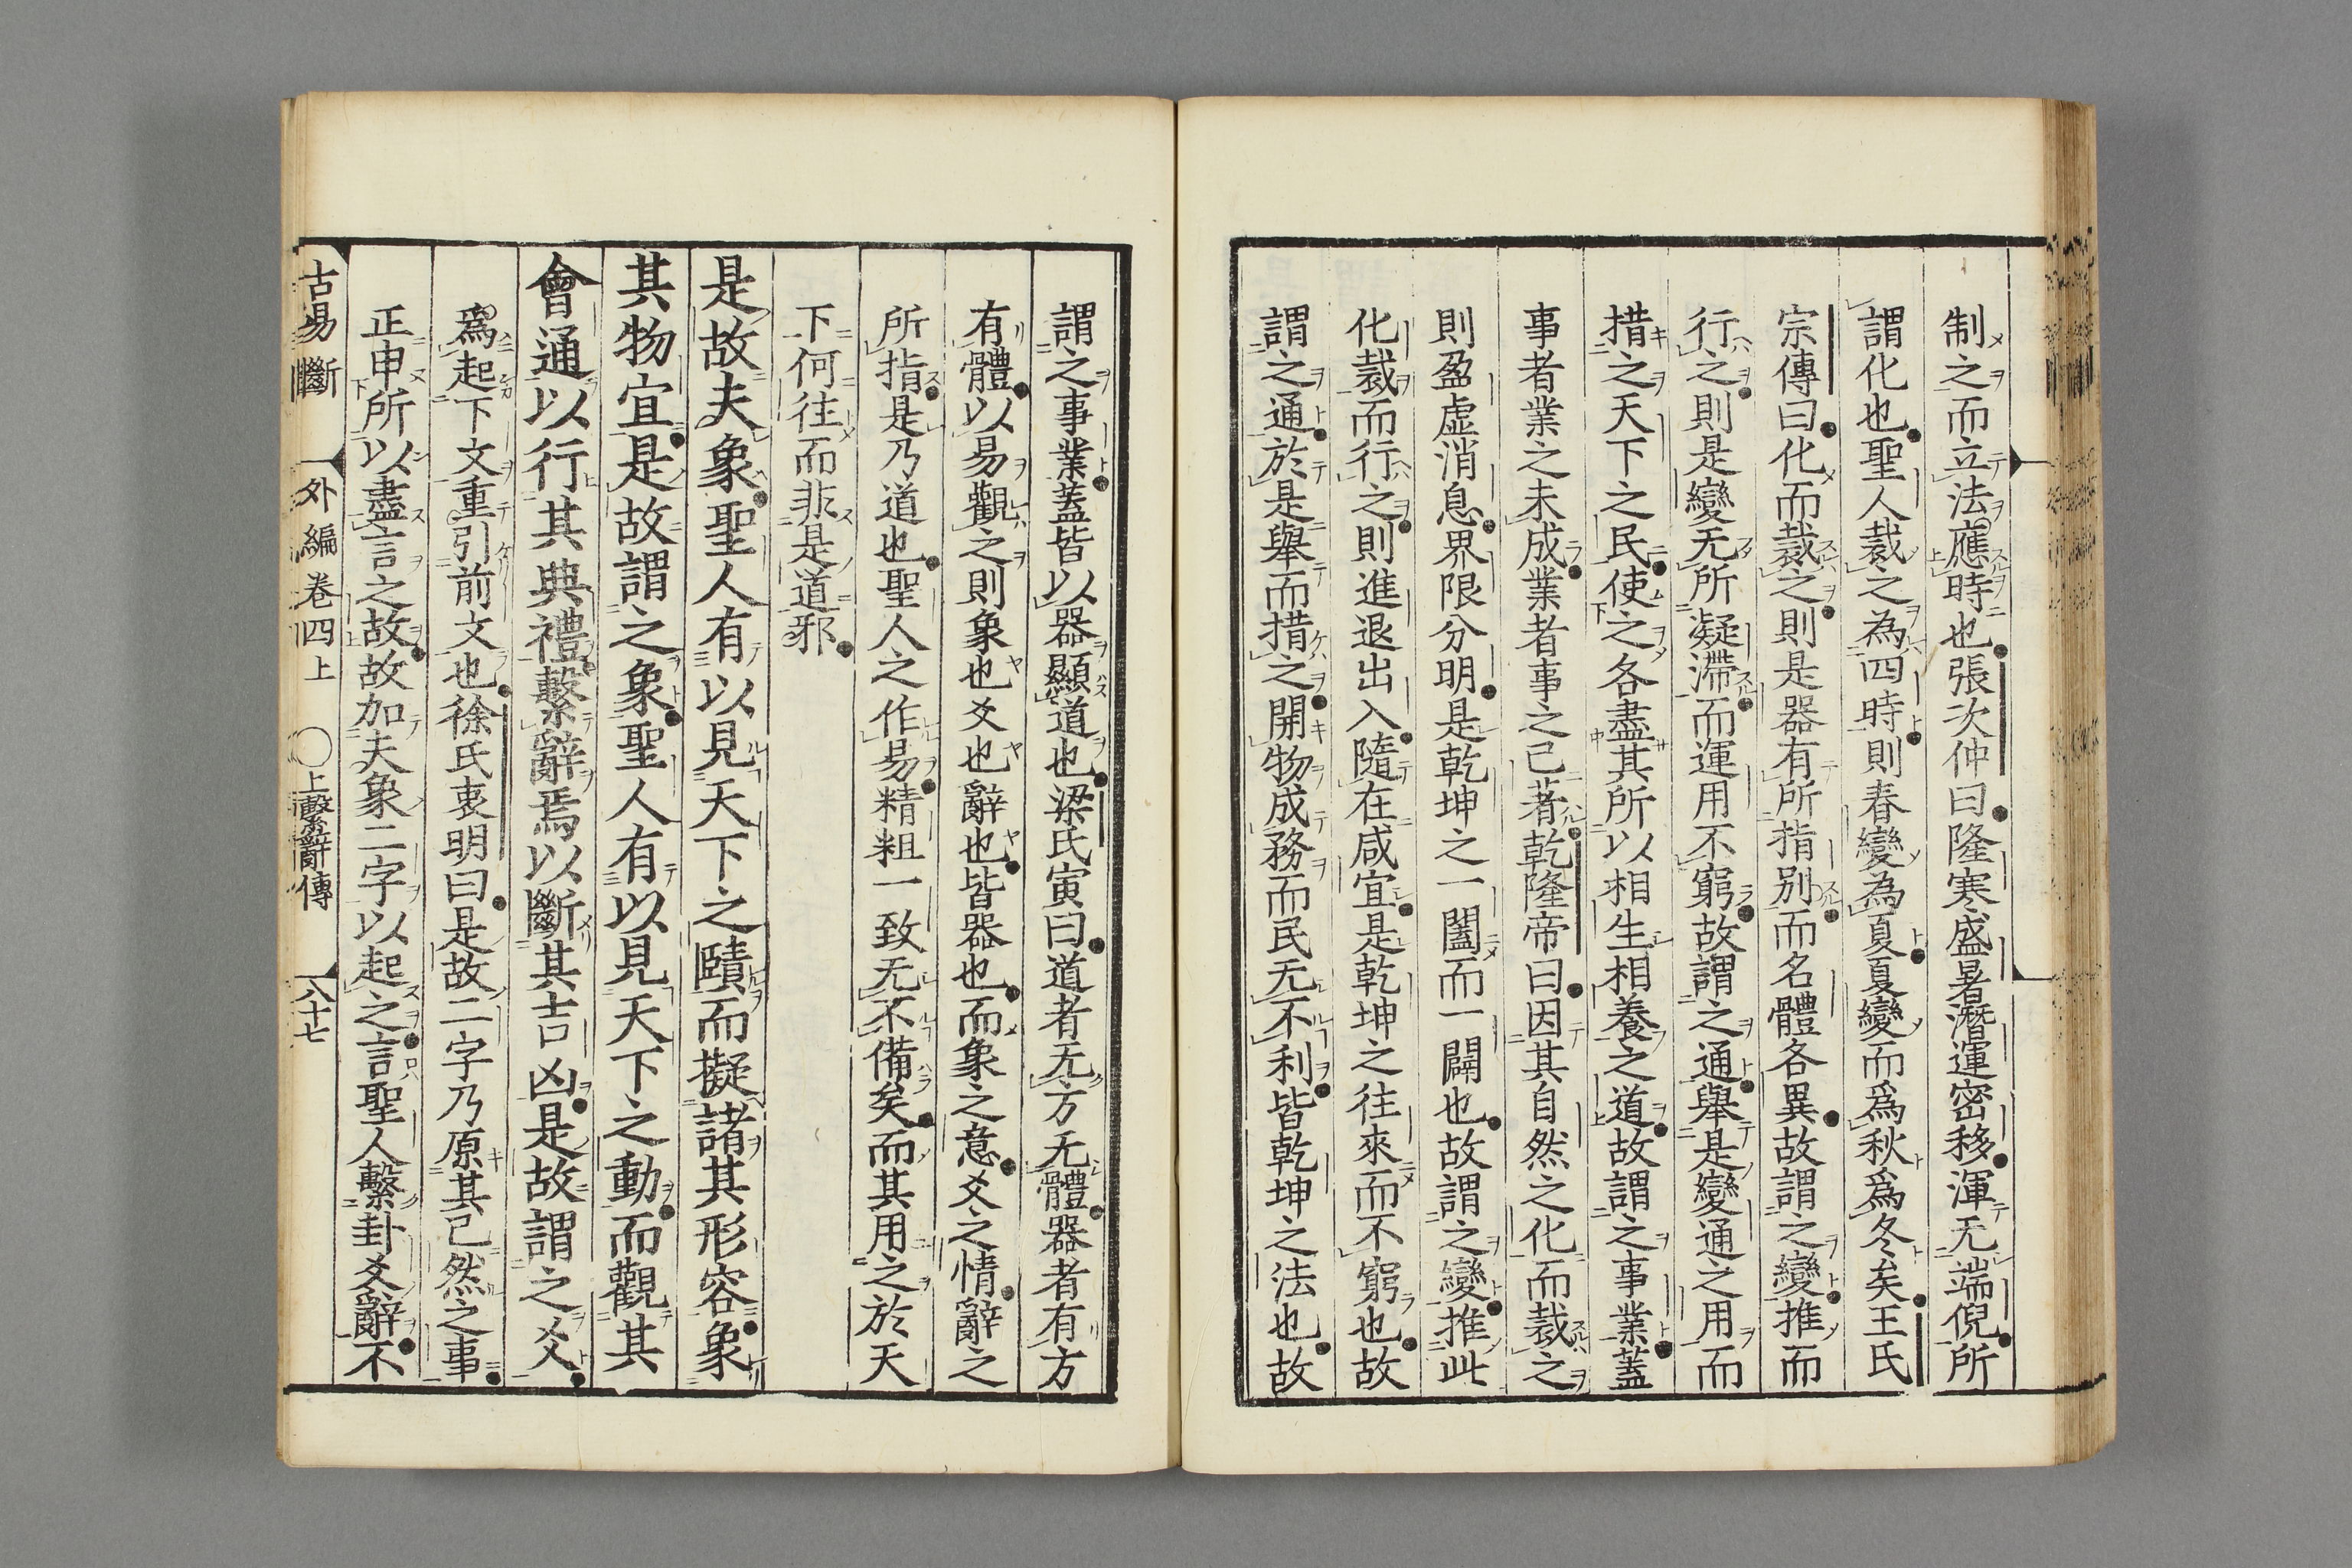 制之而立法應時也張次仲曰隆寒盛暑潛運密移渾无端倪所
謂化也聖人裁之為四時則春變為夏夏變而爲秋爲冬矣王氏
宗傳曰化而裁之則是器有所指別而名體各異故謂之變推而
行之則是變无所凝滯而運用不窮故謂之通舉是變通之用而
措之天下之民使之各盡其所以相生相養之道故謂之事業蓋
事者業之未成業者事之已著乾隆帝曰因其自然之化而裁之
則盈虛消息界限分明是乾坤之一闔而一闢也故謂之變推此
化裁而行之則進退出入隨在咸宜是乾坤之往來而不窮也故
謂之通於是舉而措之開物成務而民无不利皆乾坤之法也故
謂之事業蓋皆以器顯道也梁氏寅曰道者无方无體器者有方
有體以易觀之則象也爻也辭也皆器也而象之意爻之情辭之
所指是乃道也聖人之作易精粗一致无不備矣而其用之於天
下何往而非是道邪
是故夫象聖人有以見天下之賾而擬諸其形容象
其物宜是故謂之象聖人有以見天下之動而觀其
會通以行其典禮繫辭焉以斷其吉凶是故謂之爻
爲起下文重引前文也徐氏衷明曰是故二字乃原其已然之事
正申所以盡言之故故加夫象二字以起之言聖人繫卦爻辭不
古易斷 外編卷四上 〇上繫辭傳 八十七